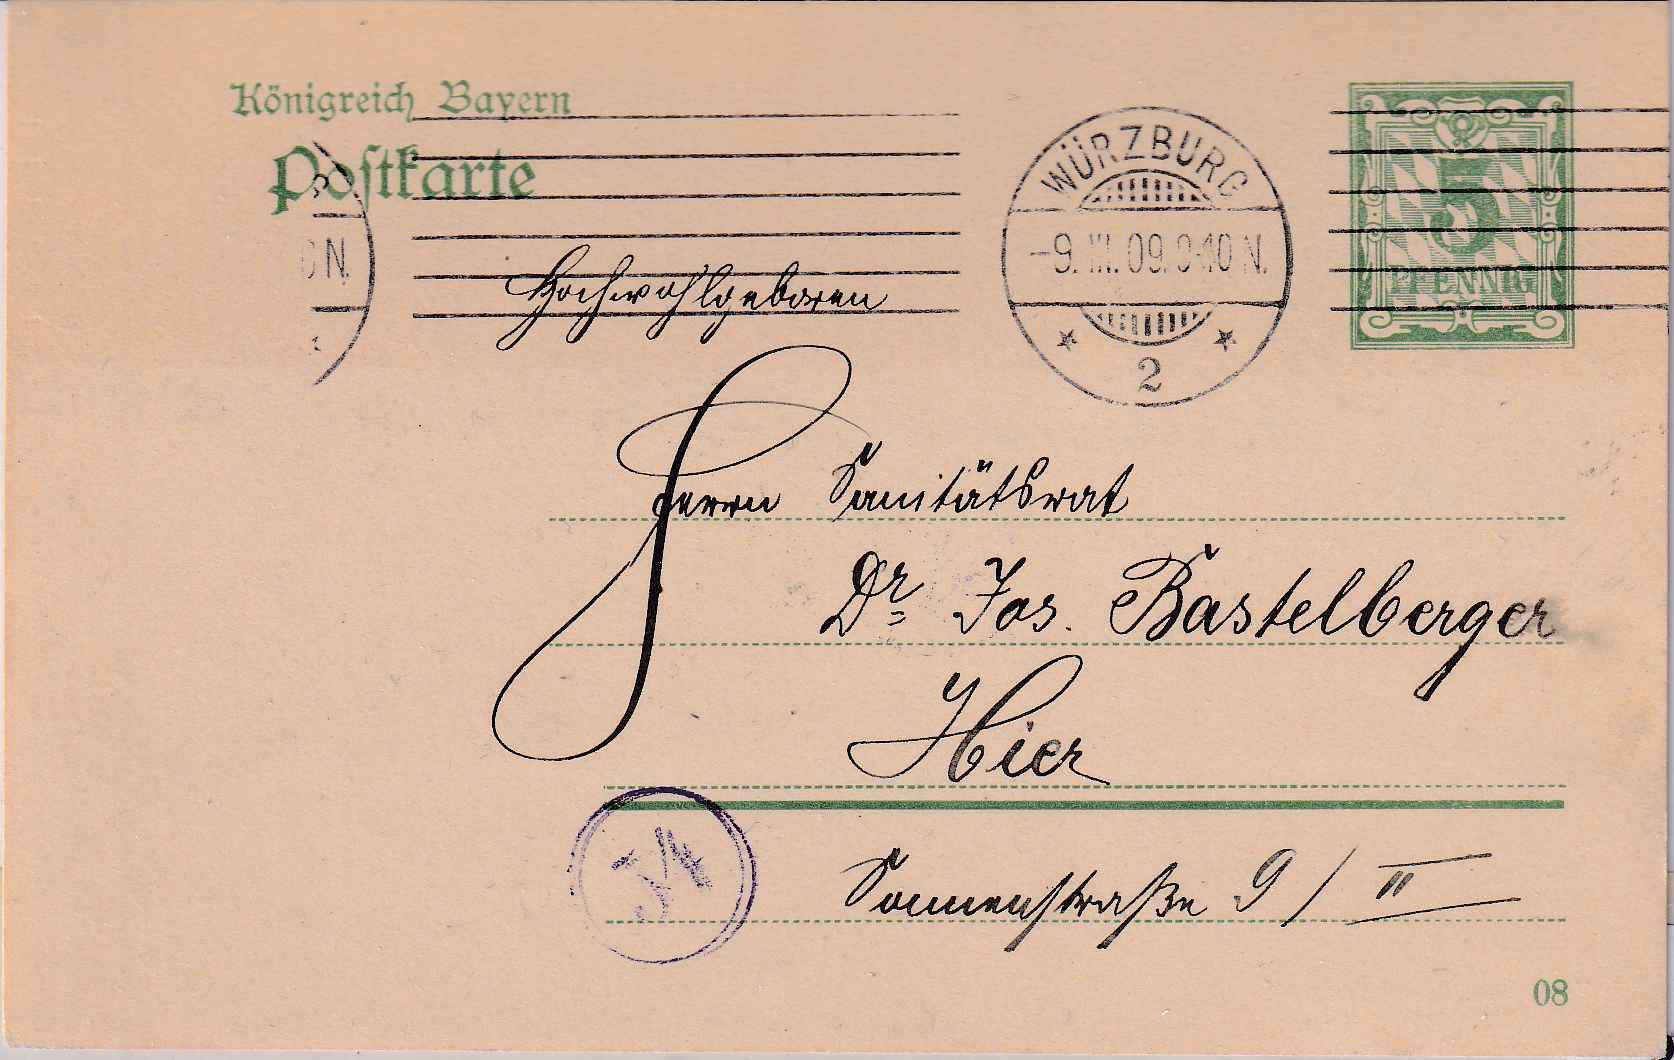 Königreich Bayern
Postkarte
N.
WÜRZBURG
-9. III. 09. 9-10 N.
2
5
PFENNIG
Hochwohlgeboren
Herrn Sanitätsrat
Dr. Jos. Bastelberger
Hier
Sonnenstraße 9 / II
08